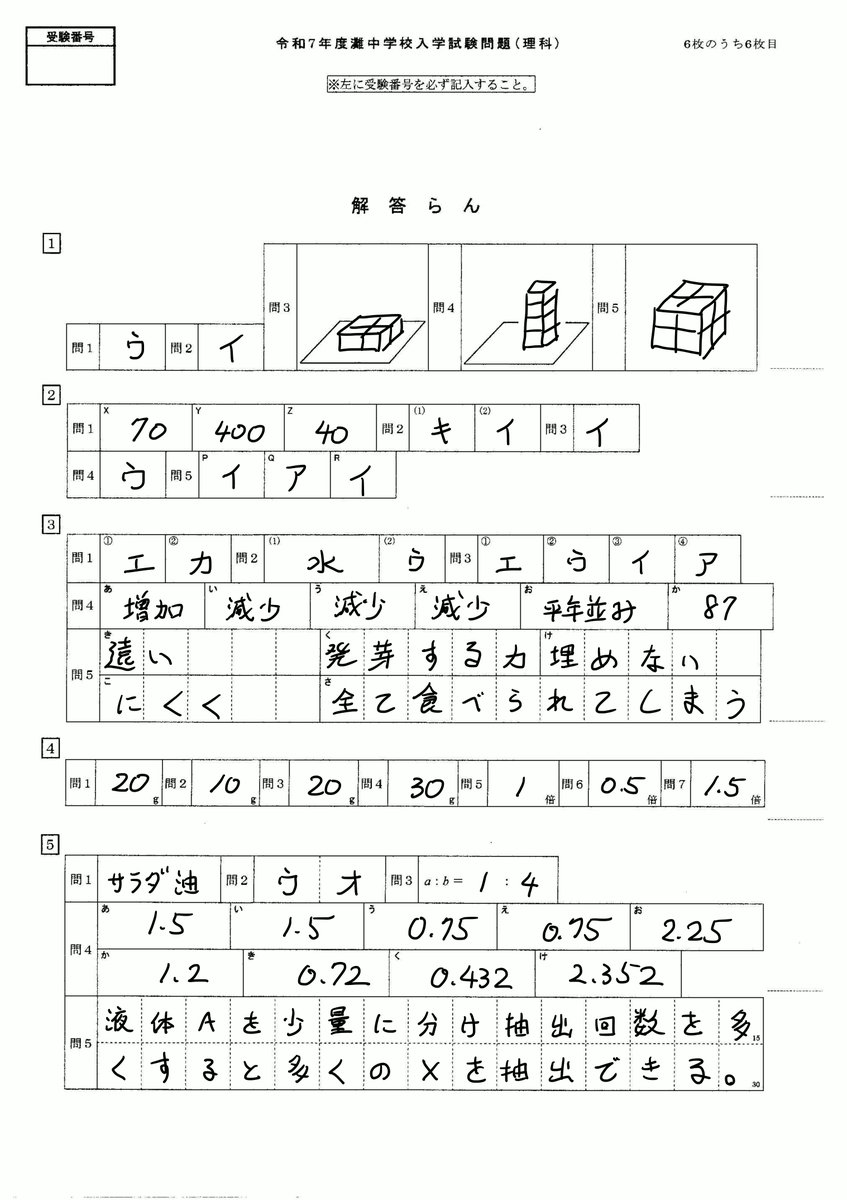 受験番号
令和7年度灘中学校入学試験問題(理科)
6枚のうち6枚目
※左に受験番号を必ず記入すること。
解答らん
1
問1 ウ 問2 イ 問3 問4 問5
2
問1 X 70 Y 400 Z 40 問2 (1) キ (2) イ 問3 イ
問4 ウ 問5 P イ Q ア R イ
3
問1 ① エ ② カ 問2 (1) 水 (2) ウ 問3 ① エ ② ウ ③ イ ④ ア
問4 あ 増加 い 減少 う 減少 え 減少 お 平年並み か 87
問5 き 遠い く 発芽する力 け 埋めない
こ にくく さ 全て食べられてしまう
4
問1 20 g 問2 10 g 問3 20 g 問4 30 g 問5 1 倍 問6 0.5 倍 問7 1.5 倍
5
問1 サラダ油 問2 ウ オ 問3 a:b= 1 : 4
問4 あ 1.5 い 1.5 う 0.75 え 0.75 お 2.25
か 1.2 き 0.72 く 0.432 け 2.352
問5 液体Aを少量に分け抽出回数を多 15
くすると多くのXを抽出できる。 30